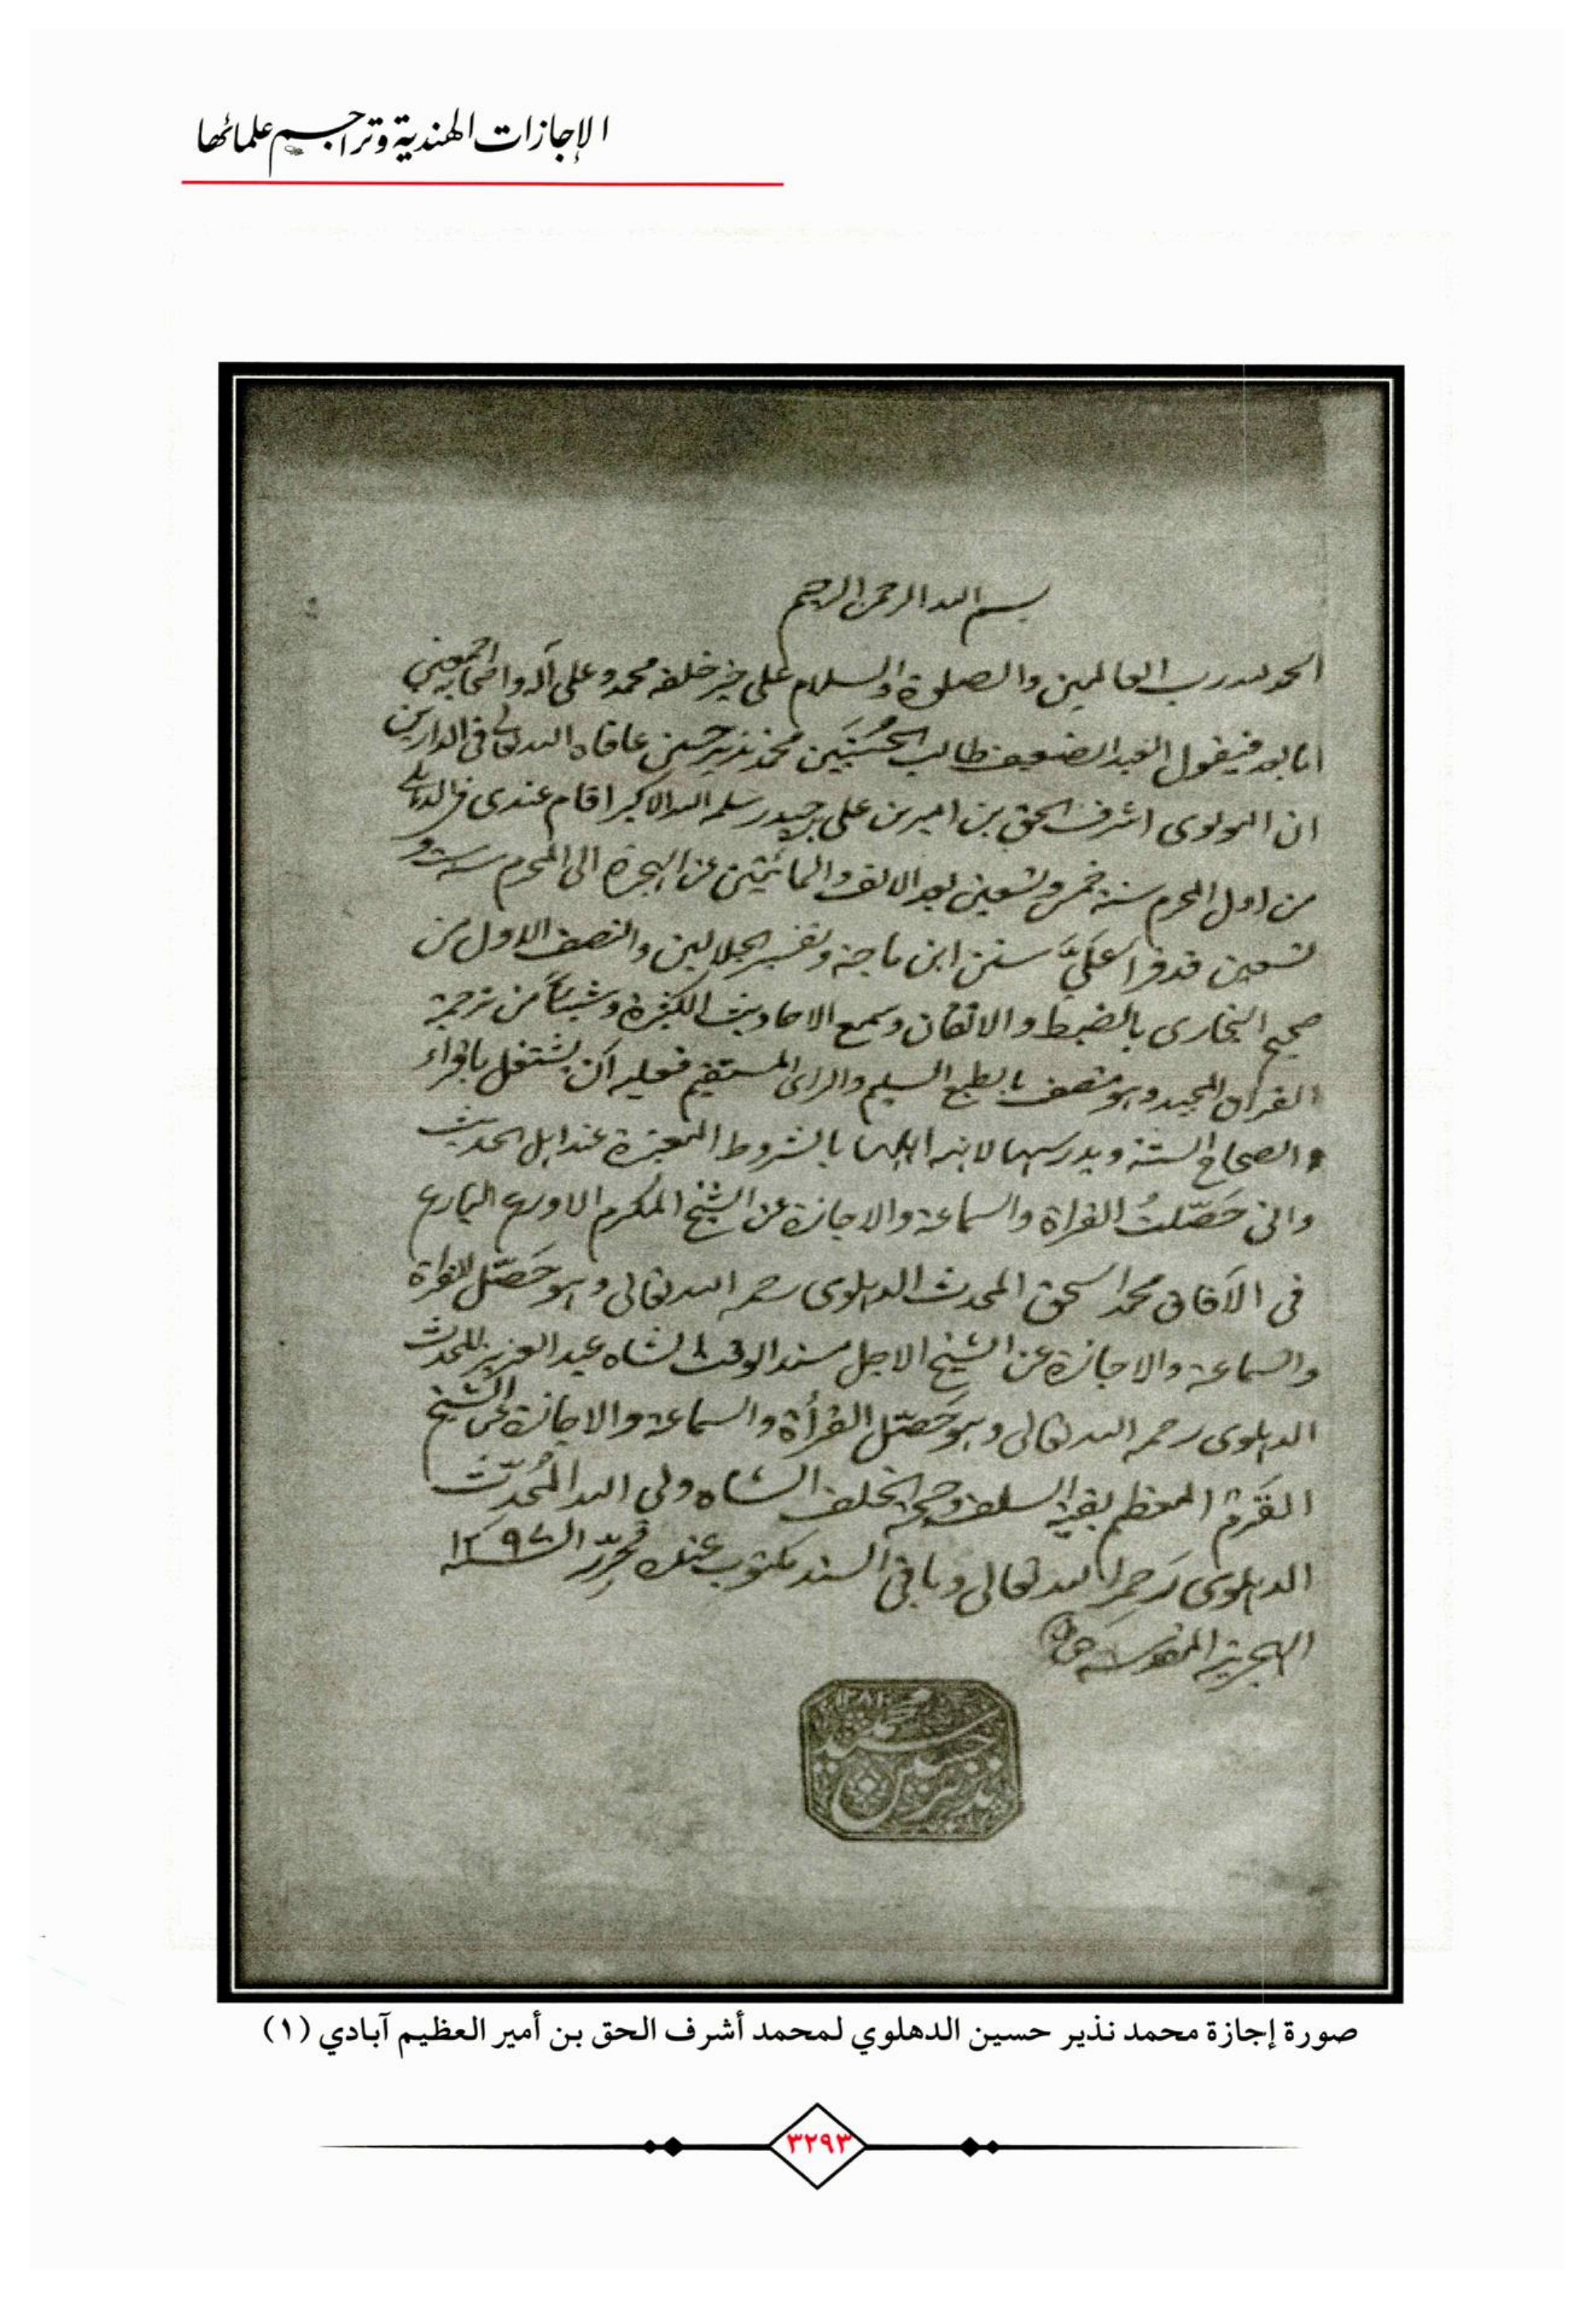 الإجازات الهندية وتراجم علمائها
بسم الله الرحمن الرحيم
الحمد لله رب العالمين والصلوة والسلام على خير خلقه محمد وعلى آله واصحابه اجمعين
اما بعد فيقول العبد الضعيف طالب الحُسْنَيَين محمد نذير حسين عافاه الله تعالى في الدارين
ان المولوى اشرف الحق بن امير بن على بن حيدر سلمه الله الاكبر اقام عندى في الدهلى
من اول المحرم سنة خمس وتسعين بعد الالف والمائتين من الهجرة الى المحرم سنة
تسعين قد قرأ عَلَيَّ سنن ابن ماجه وتفسير الجلالين والنصف الاول من
صحيح البخارى بالضبط والاتقان وسمع الاحاديث الكثيرة وشيئاً من ترجمة
القرآن المجيد وهو متصف بالطبع السليم والراى المستقيم فعليه اَن يشتغل باقراء
الصحاح الستة ويدرسها لانه اهلها بالشروط المعتبرة عند اهل الحديث
وانى حَصّلتُ القراة والسماعة والاجازة عن الشيخ المكرم الاورع البارع
فى الآفاق محمد اسحق المحدث الدهلوى رحمه الله تعالى وهو حَصّل القراة
والسماعة والاجازة عن الشيخ الاجل مسند الوقت الشاه عبد العزيز المحدث
الدهلوى رحمه الله تعالى وهو حَصّل القرأة والسماعة والاجازة عن الشيخ
القَرم المعظم بقية السلف وحجة الخلف الشاه ولى الله المُحدّث
الدهلوى رَحمه الله تعالى وباقى السند مكتوب عنده حُرّر السنة
الهجرية المقدسة
سيد
نذير حسين
صورة إجازة محمد نذير حسين الدهلوي لمحمد أشرف الحق بن أمير العظيم آبادي (١)
٣٢٩٣